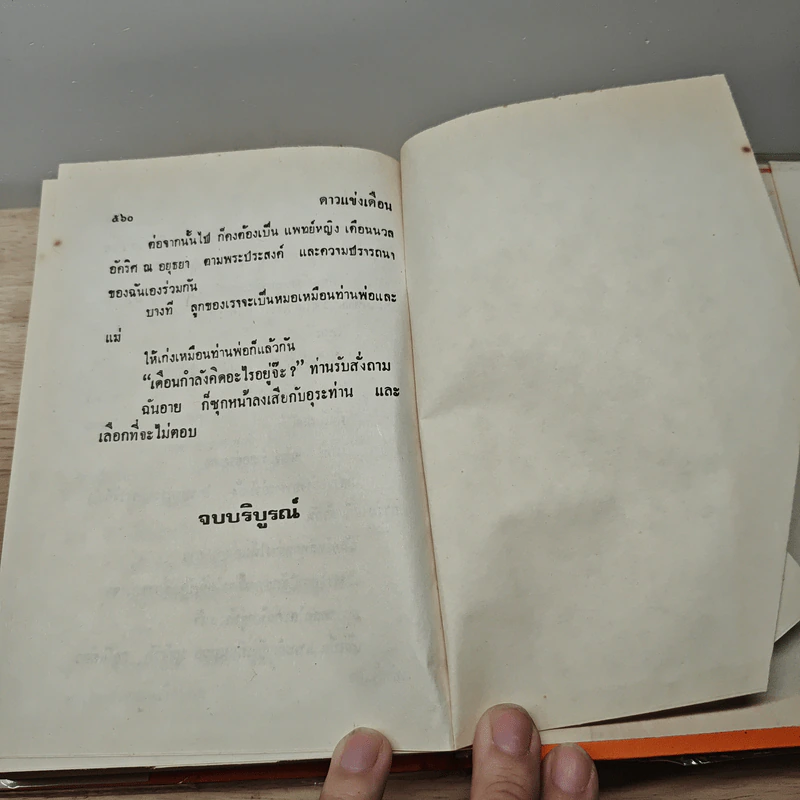 ๕๖๐
ดาวแข่งเดือน
ต่อจากนั้นไป ก็คงต้องเป็น แพทย์หญิง เดือนนวล
อัคริศ ณ อยุธยา ตามพระประสงค์ และความปรารถนา
ของฉันเองร่วมกัน
บางที ลูกของเราจะเป็นหมอเหมือนท่านพ่อและ
แม่
ให้เก่งเหมือนท่านพ่อก็แล้วกัน
“เดือนกำลังคิดอะไรอยู่จ๊ะ?” ท่านรับสั่งถาม
ฉันอาย ก็ซุกหน้าลงเสียกับอุระท่าน และ
เลือกที่จะไม่ตอบ
จบบริบูรณ์